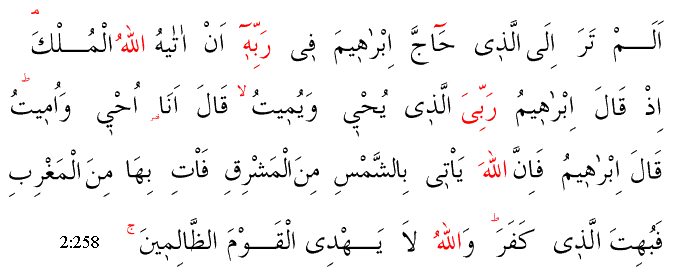 اَلَمْ تَرَ اِلَى الَّذٖى حَٓاجَّ اِبْرٰهٖيمَ فٖى رَبِّهٖٓ اَنْ اٰتٰيهُ اللهُ الْمُلْكَۘ
اِذْ قَالَ اِبْرٰهٖيمُ رَبِّىَ الَّذٖى يُحْيٖ وَيُمٖيتُۙ قَالَ اَنَا۬ اُحْيٖ وَاُمٖيتُؕ
قَالَ اِبْرٰهٖيمُ فَاِنَّ اللهَ يَاْتٖى بِالشَّمْسِ مِنَ الْمَشْرِقِ فَاْتِ بِهَا مِنَ الْمَغْرِبِ
فَبُهِتَ الَّذٖى كَفَرَؕ وَاللهُ لَا يَهْدِى الْقَوْمَ الظَّالِمٖينَۚ 2:258